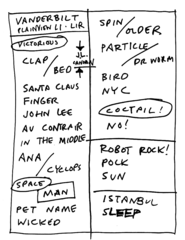 VANDERBILT
PLAINVIEW LI - LIR
VICTORIOUS
CLAP/
BED
SANTA CLAUS
FINGER
JOHN LEE
AU CONTRAIR
IN THE MIDDLE
ANA/
CYCLOPS
SPACE
MAN
PET NAME
WICKED
SPIN/
OLDER
PARTICLE/
DR WORM
BIRD
NYC
COCTAIL!
NO!
ROBOT ROCK!
POLK
SUN
ISTANBUL
SLEEP